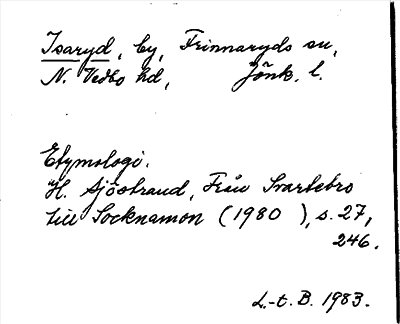 Isaryd, by, Frinnaryds sn,
N. Vedbo hd, Jönk. l.
Etymologi.
H. Sjöstrand, Från Svartebro
till Socknamon (1980 ), s. 27,
246.
L.-t. B. 1983.